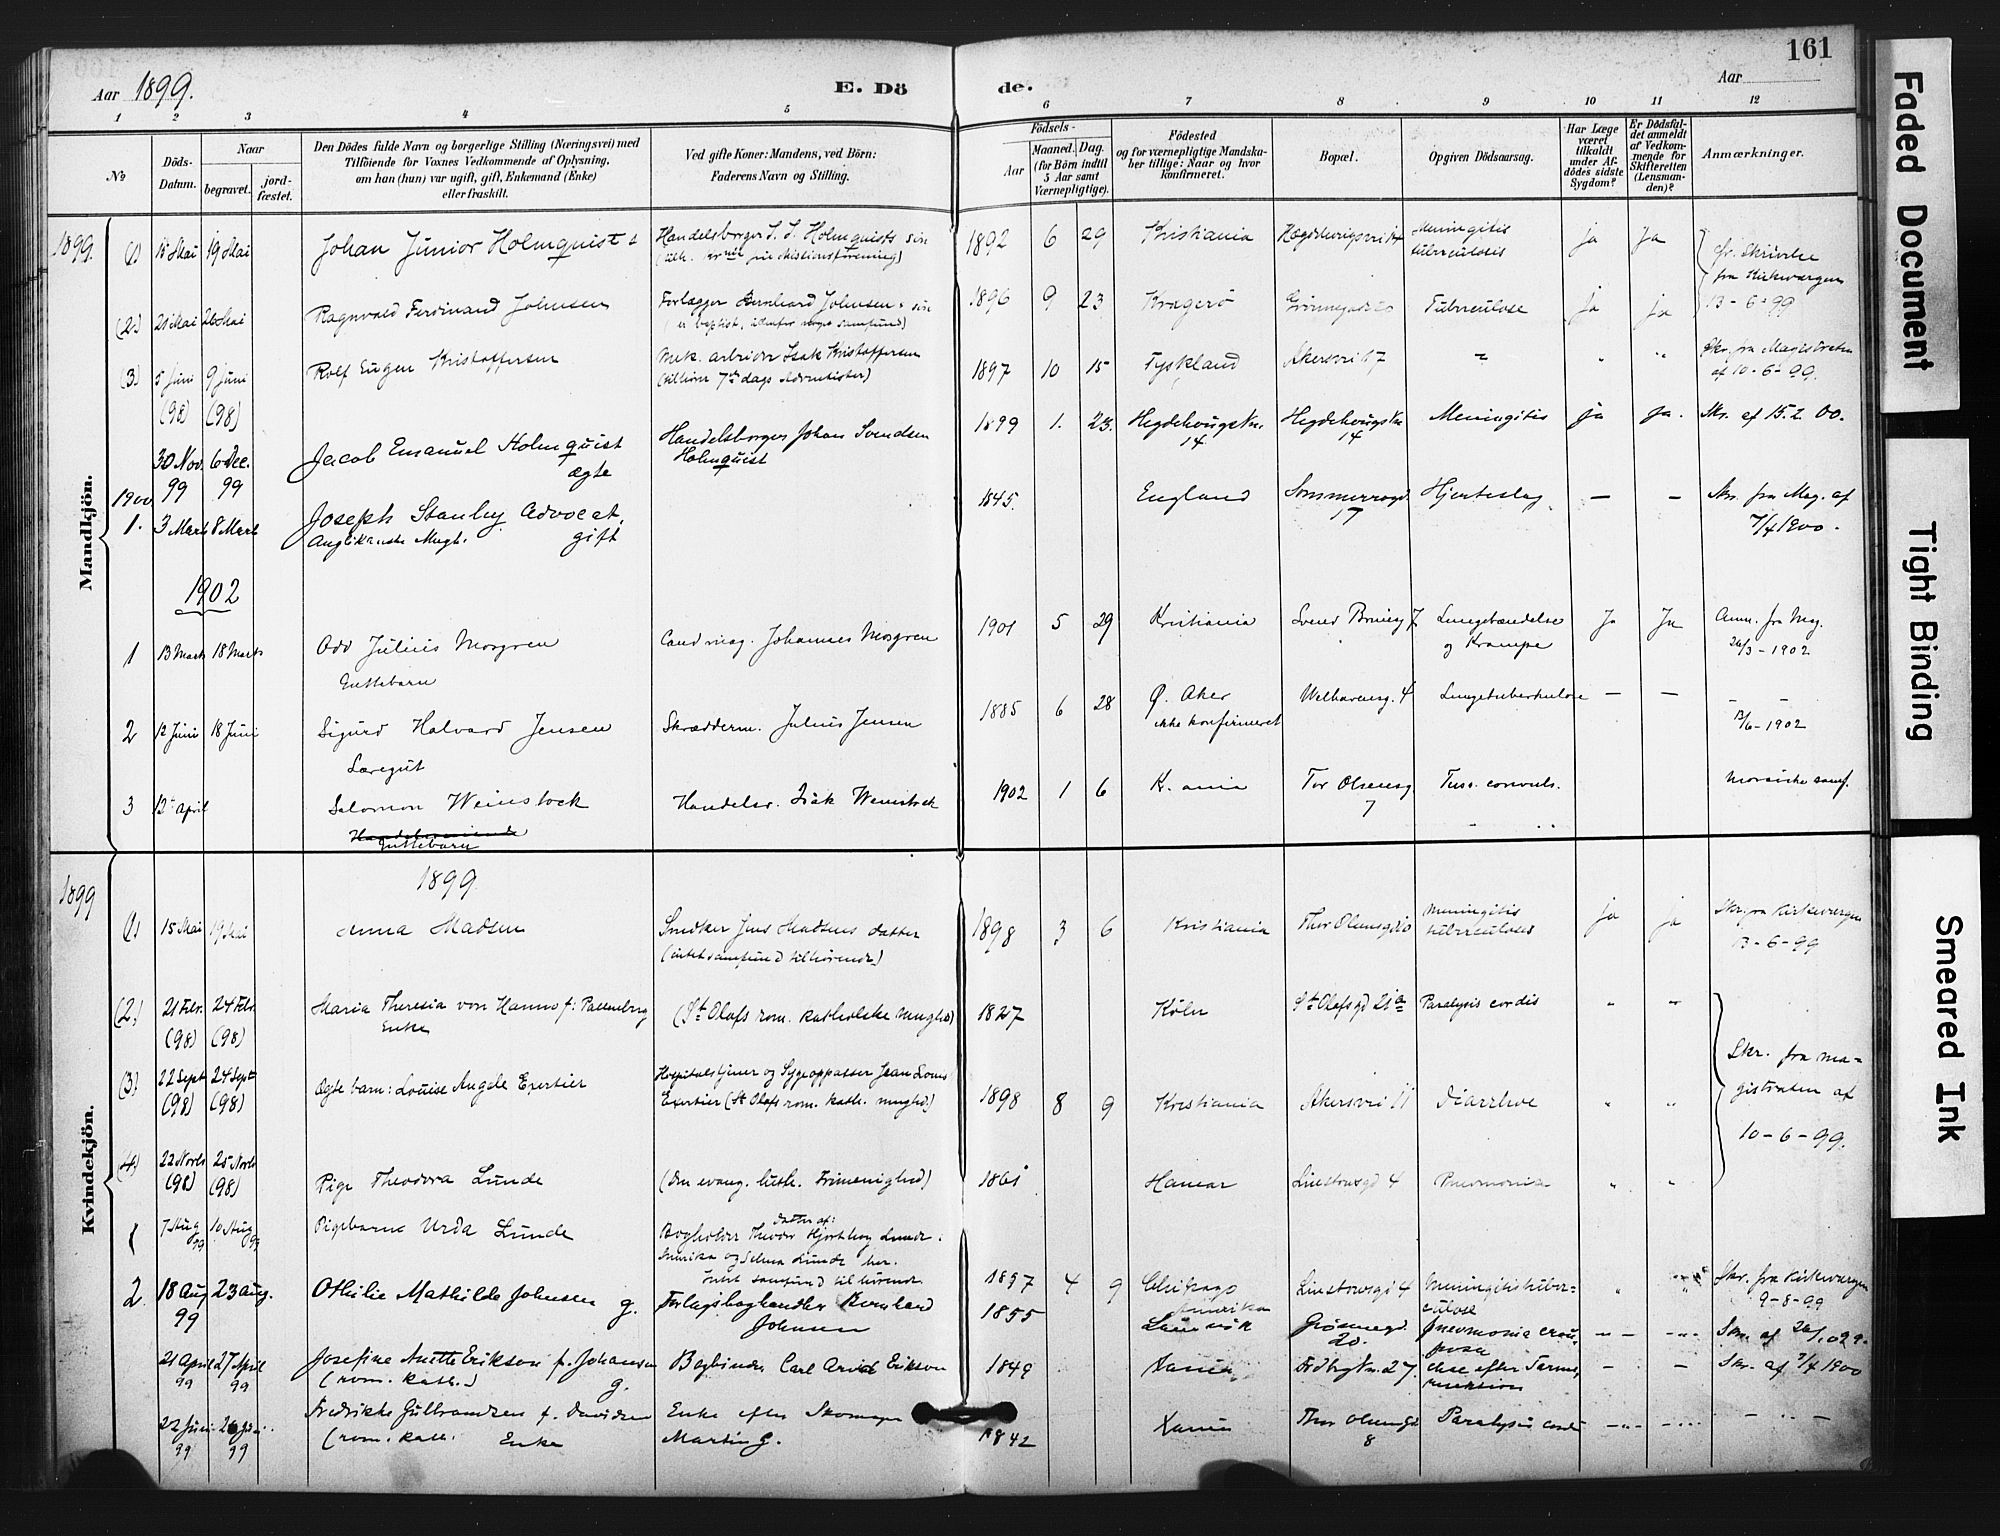 161
Aar 1899.
E. Dö
de.
Aar
1 2 3 4 5 6 7 8 9 10 11 12
No
Döds-
Datum.
Naar
begravet.
jord-
fæstet.
Den Dödes fulde Navn og borgerlige Stilling (Næringsvei) med
Tilföiende for Voxnes Vedkommende af Oplysning,
om han (hun) var ugift, gift, Enkemand (Enke)
eller fraskilt.
Ved gifte Koner: Mandens, ved Börn:
Faderens Navn og Stilling.
Födsels-
Aar
Maaned. Dag.
(for Börn indtil
5 Aar samt
Værnepligtige).
Födested
og for værnepligtige Mandska-
ber tillige: Naar og hvor
konfirmeret.
Bopæl.
Opgiven Dödsaarsag.
Har Læge
været
tilkaldt
under Af-
dödes sidste
Sygdom?
Er Dödsfal-
det anmeldt
af Vedkom-
mende for
Skifteretten
(Lensman-
den)?
Anmærkninger.
Mandkjön.
1899. (1) 15 Mai 19 Mai Johan Junior Holmquist Handelsborger J. S. Holmquists søn 1892 6 29 Kristiania Meningitis tuberculosis ja ja
Skrivelse
fra Kirkevergen
13-6-99
(2) 21 Mai 26 Mai Ragnvald Ferdinand Johnsen Forlægger Bernhard Johnsens søn 1896 9 23 Kragerö Tuberculose ja ja
(3) 5 Juni 9 Juni Rolf Eugen Kristoffersen Mek. arbeider Isak Kristoffersen 1897 10 15 Tyskland Akersvei 17 " " " Skr. fra Magistraten
(98) (98) (tilhører 7de dags Adventister) af 10-6-99.
30 Nov. 6 Dec. Jacob Emanuel Holmquist Handelsborger Johan Svendsen 1899 1. 23. Hegdehougsv. Hegdehougsv. Meningitis ja ja. Skr. af 15.2.00.
99 99 ægte Holmquist 14 14
1900
1. 3 Marts 8 Marts Joseph Stanley Advocat, 1845. England Sommerrogd. Hjerteslag — — Skr. fra Mag. af
Anglikanske Mngh. gift 17 7/4 1900.
1902
1 13 Marts 18 Marts Odv Julius Mosgren Cand mag. Johannes Mosgren 1901 5 29 Kristiania Svend Brunsg 7 Lungebetændelse Ja Ja Anm. fra Mag.
Guttebarn og Krampe 26/3-1902
2 12 Juni 18 Juni Sigurd Halvard Jensen Skrædderm. Julius Jensen 1885 6 28 Ø. Aker Welhavensg. 4 Lungetuberkulose — —
Læregut ikke konfirmeret 13/6-1902
3 12 April Salomon Weinstock Handelsr. Isak Weinstock 1902 1 6 K.ania Tor Olsensg Tuss. convuls. mosaiske samf.
Guttebarn 7
Kvindekjön.
1899
1899
(1) 15 Mai 19 Mai Anna Madsen Snedker Jens Madsens datter 1898 3 6 Kristiania Meningitis ja ja Skr. fra Kirkevergen
(intet samfund tilhørende) tuberculosis 13-6-99
(2) 21 Febr. 24 Febr. Maria Theresia von Hanno f: Pallenberg (St Olafs rom. katholske menghd) 1827 Köln St Olafsgd 21a Paralysis cordis " "
(98) (98) Enke
(3) 22 Sept 24 Sept Ægte barn: Louise Angele Exertier Hospitalstjener og Sygeopasser Jean Louis 1898 8 9 Kristiania Akersvei 11 Diarrhoe " "
(98) (98) Exertier (St Olafs rom. kath. menghd.)
Skr. fra ma-
gistraten af
10-6-99.
(4) 22 Novb 25 Novb Pige Theodora Lunde (Den evang. luth. Frimenighed) 1861 Hamar Linstowsgd 4 Pneumonia " "
(98) (98)
1 7 Aug 10 Aug Pigebarn Urda Lunde datter af:
99 99 Bogholder Theodor Hjortberg Lunde
Amerika og Selma Lunde her.
Intet samfund tilhørende 1897 4 9 Chikago Linstowsgd 4 Meningitis tuber- " " Skr. fra Kirkevergen
Amerika culose 9-8-99
2. 18 Aug 23 Aug. Othilie Mathilde Johnsen g. Forlagsboghandler Bernhard 1855 Grønnegd. Pneumonia crou-
99 Johnsen 20. posa
21 April 27 April Josefine Anette Erikson f. Johansen Bogbinder Carl Arvid Erikson 1849 — — Skr. af 7/4 1900
99 99 (rom. kath.) g.
22 Juni 26 Juni Fredrikke Gulbrandsen f. Davidsen Enke efter Skomager 1842 Thor Olsensgd Paralysis cordis
99 99 (rom. kath. Enke Martin G. 8
Faded Document
Tight Binding
Smeared Ink